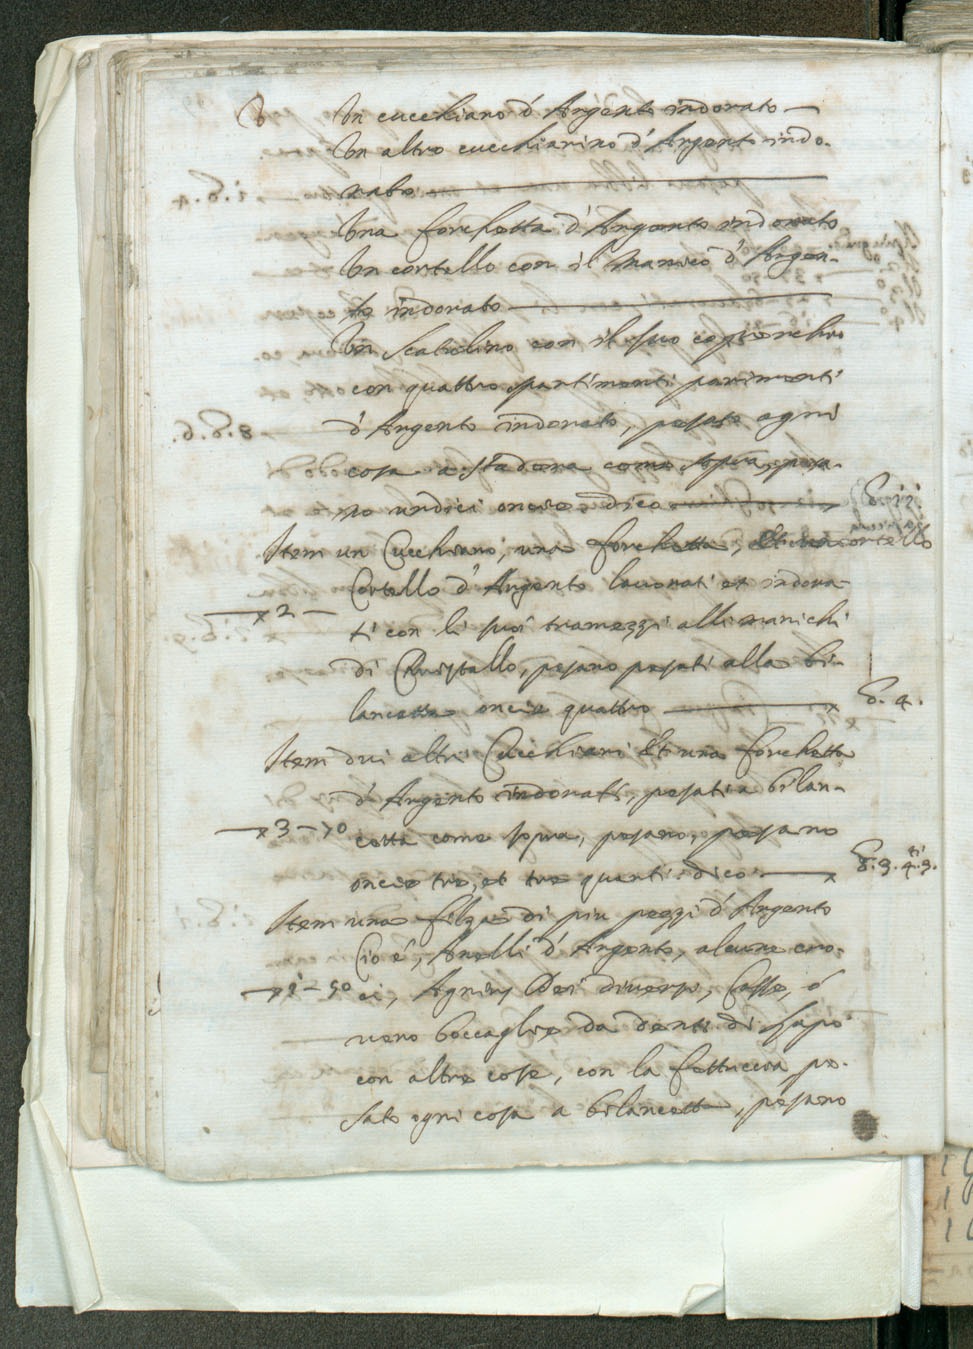 Un cucchiaro d'Argento indorato
Un altro cucchiarino d'Argento indo-
rato
Una forchetta d'Argento indorato
Un cortello con il manico d'Argen-
to indorato
Un Scatolino con il suo coperchio
con quattro spartimenti parimenti
d'Argento indorato, pesato ogni
cosa a stadera come sopra, pesa-
no undici oncie dico
Item un Cucchiaro, una forchetta, et un cortello
Cortello d'Argento lauorati et indora-
2
ti con li suoi tramezzi alli manichi
di Christallo, pesano pesati alla bi-
lancetta oncie quattro 4.
Item dui altri Cucchiari et una forchetta
d'Argento indorati, pesati a bilan-
3-70
cetta come sopra, pesano, pesano
oncie tre, et tre quarti dico 3. 3.
Item una filza di piu pezzi d'Argento
Cio é, Anelli d'Argento, alcune cro-
1-50
ci, Agnus Dei diuersi, Casse, ó
uero boccaglie da denti di
con altre cose, con la fettuccia, pe-
sato ogni cosa a bilancetta, pesano